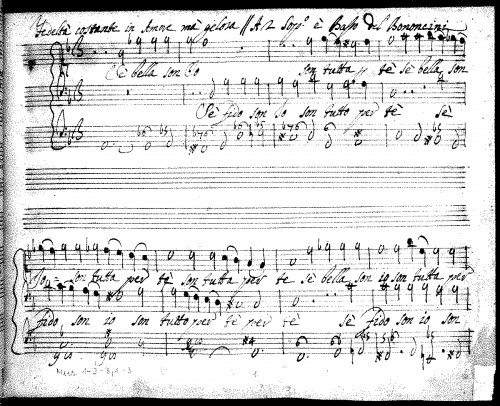 Fedeltà costante in Amore mà gelosa // A 2 Sop.º è Basso Del Bononcini
Sè bella son Io son tutta p tè sè bella son
Sè fido son Io son tutto per tè sè
Io son tutta per tè son tutta per te sè bella son io son tutta per
fido son io son tutto per tè per te Sè fido son io, son